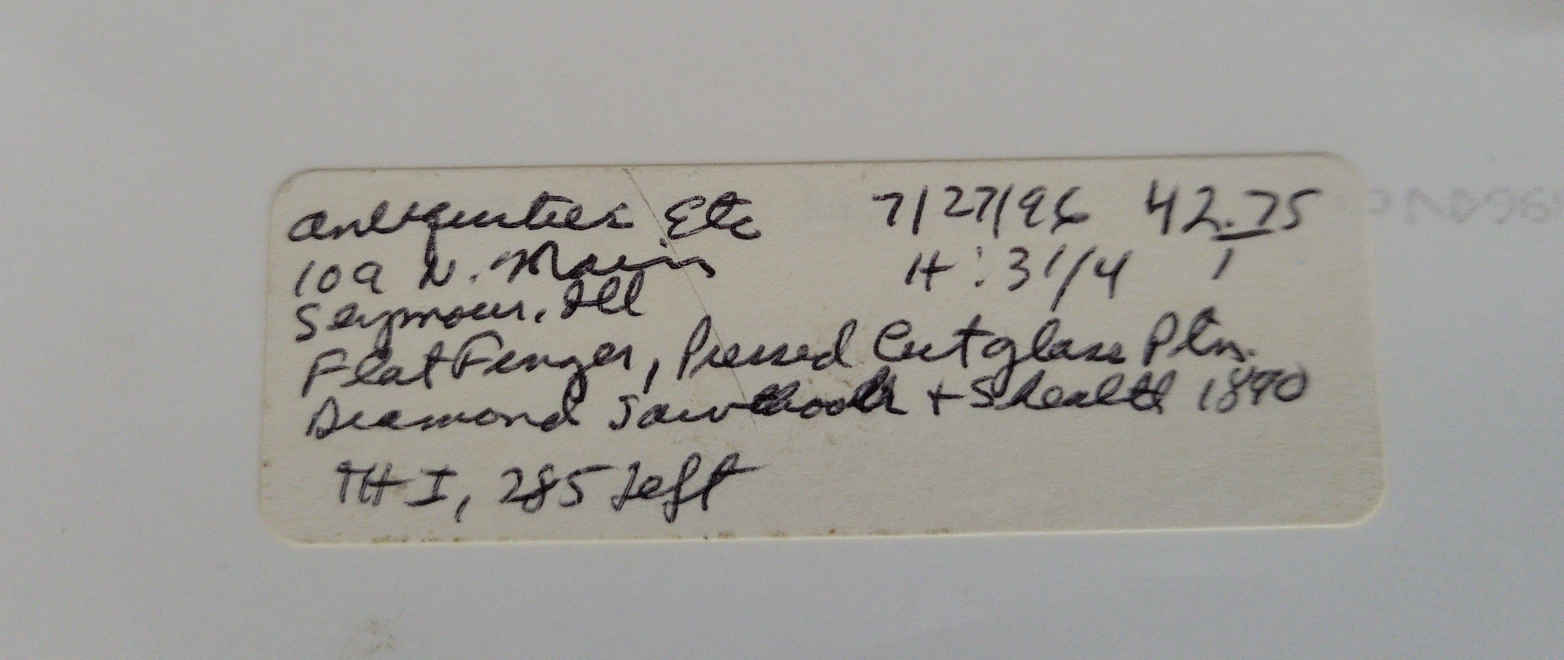 Antiquities Etc 7/27/96 42.75
109 N. Main H: 3 1/4 1
Seymour, Ill
Flat Finger, Pressed Cutglass Ptn.
Diamond Sawtooth + Shealth 1890
TH I, 285 Left